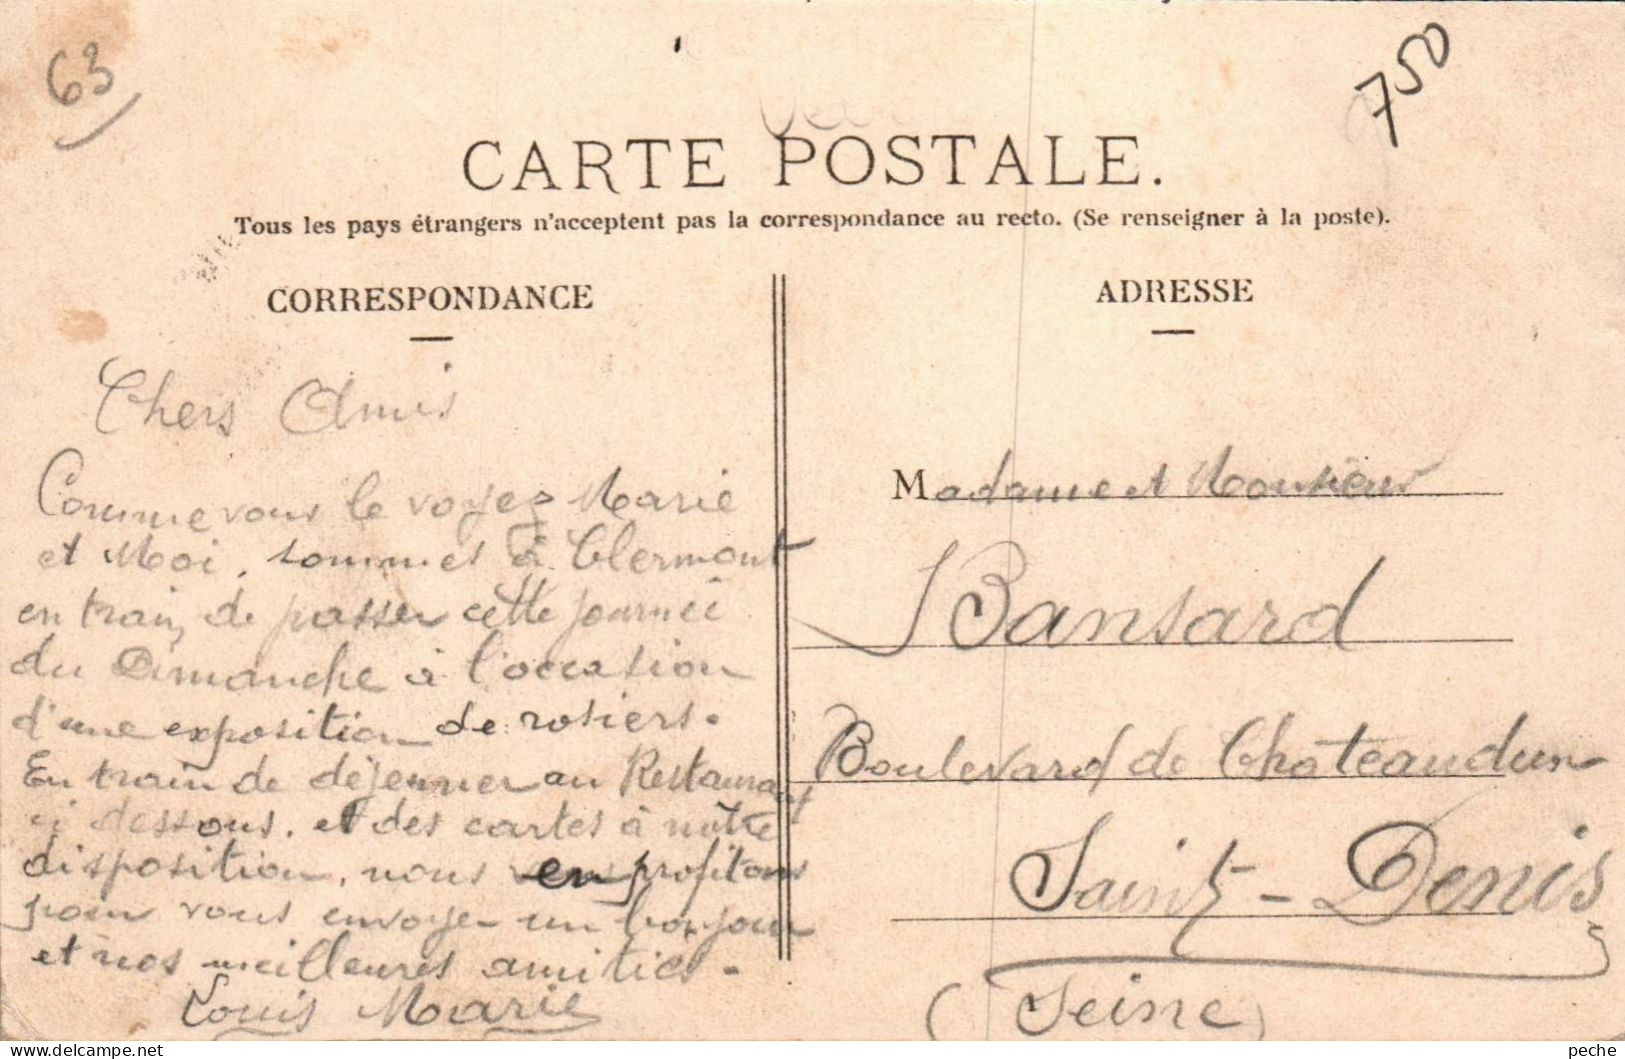 63
750
CARTE POSTALE.
Tous les pays étrangers n'acceptent pas la correspondance au recto. (Se renseigner à la poste).
CORRESPONDANCE
Chers Amis
Comme vous le voyez Marie
et Moi, sommes à Clermont
en train de passer cette journée
du Dimanche à l'occasion
d'une exposition de rosiers.
En train de déjeuner au Restaurant
ci dessous. et des cartes à nôtre
disposition, nous en profitons
pour vous envoyer un bonjour
et nos meilleures amitiés.
Louis Marie
ADRESSE
Madame et Monsieur
Bansard
Boulevard de Chateaudun
Saint-Denis
(Seine)
peche